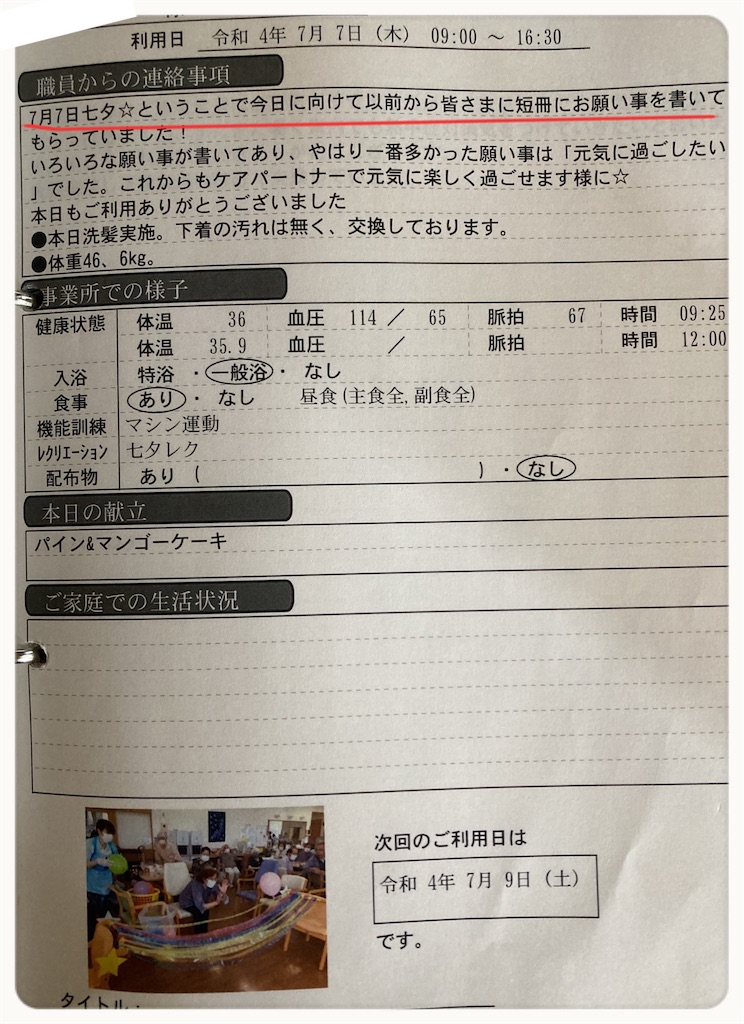 利用日 令和 4年 7月 7日 (木) 09:00 ～ 16:30
職員からの連絡事項
7月7日七夕☆ということで今日に向けて以前から皆さまに短冊にお願い事を書いて
もらっていました！
いろいろな願い事が書いてあり、やはり一番多かった願い事は「元気に過ごしたい
」でした。これからもケアパートナーで元気に楽しく過ごせます様に☆
本日もご利用ありがとうございました
●本日洗髪実施。下着の汚れは無く、交換しております。
●体重46、6kg。
事業所での様子
健康状態 体温 36 血圧 114 ／ 65 脈拍 67 時間 09:25
体温 35.9 血圧 ／ 脈拍 時間 12:00
入浴 特浴 ・ 一般浴 ・ なし
食事 あり ・ なし 昼食(主食全, 副食全)
機能訓練 マシン運動
ﾚｸﾘｴｰｼｮﾝ 七夕レク
配布物 あり ( ) ・ なし
本日の献立
パイン&マンゴーケーキ
ご家庭での生活状況
次回のご利用日は
令和 4年 7月 9日 (土)
です。
タイトル：